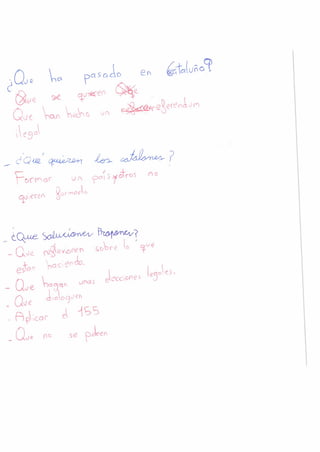 ¿Que ha pasado en Cataluña?
Que se quieren
Que han hecho un referendum
ilegal
- ¿Que quieren los catalanes?
Formar un país y otros no
quieren formarlo
- ¿Que soluciones Propones?
- Que reflexionen sobre lo que
estan haciendo.
- Que hagan unas elecciones legales.
- Que dialoguen
- Aplicar el 155
- Que no se peleen